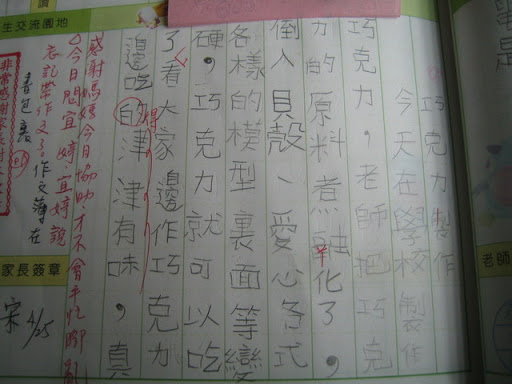 巧克力製作
今天在學校製作
巧克力，老師把巧克
力的原料煮融化了，
倒入貝殼、愛心各式
各樣的模型裏面等變
硬，巧克力就可以吃
了看大家邊作巧克力
邊吃的津津有味，真
得
感謝媽媽今日協助才不會手忙腳亂
△今日問宜婷宜婷說
忘記帶作文了。作文簿在
書包裏
非常感謝
生交流園地
家長簽章
宋 4/25
老師